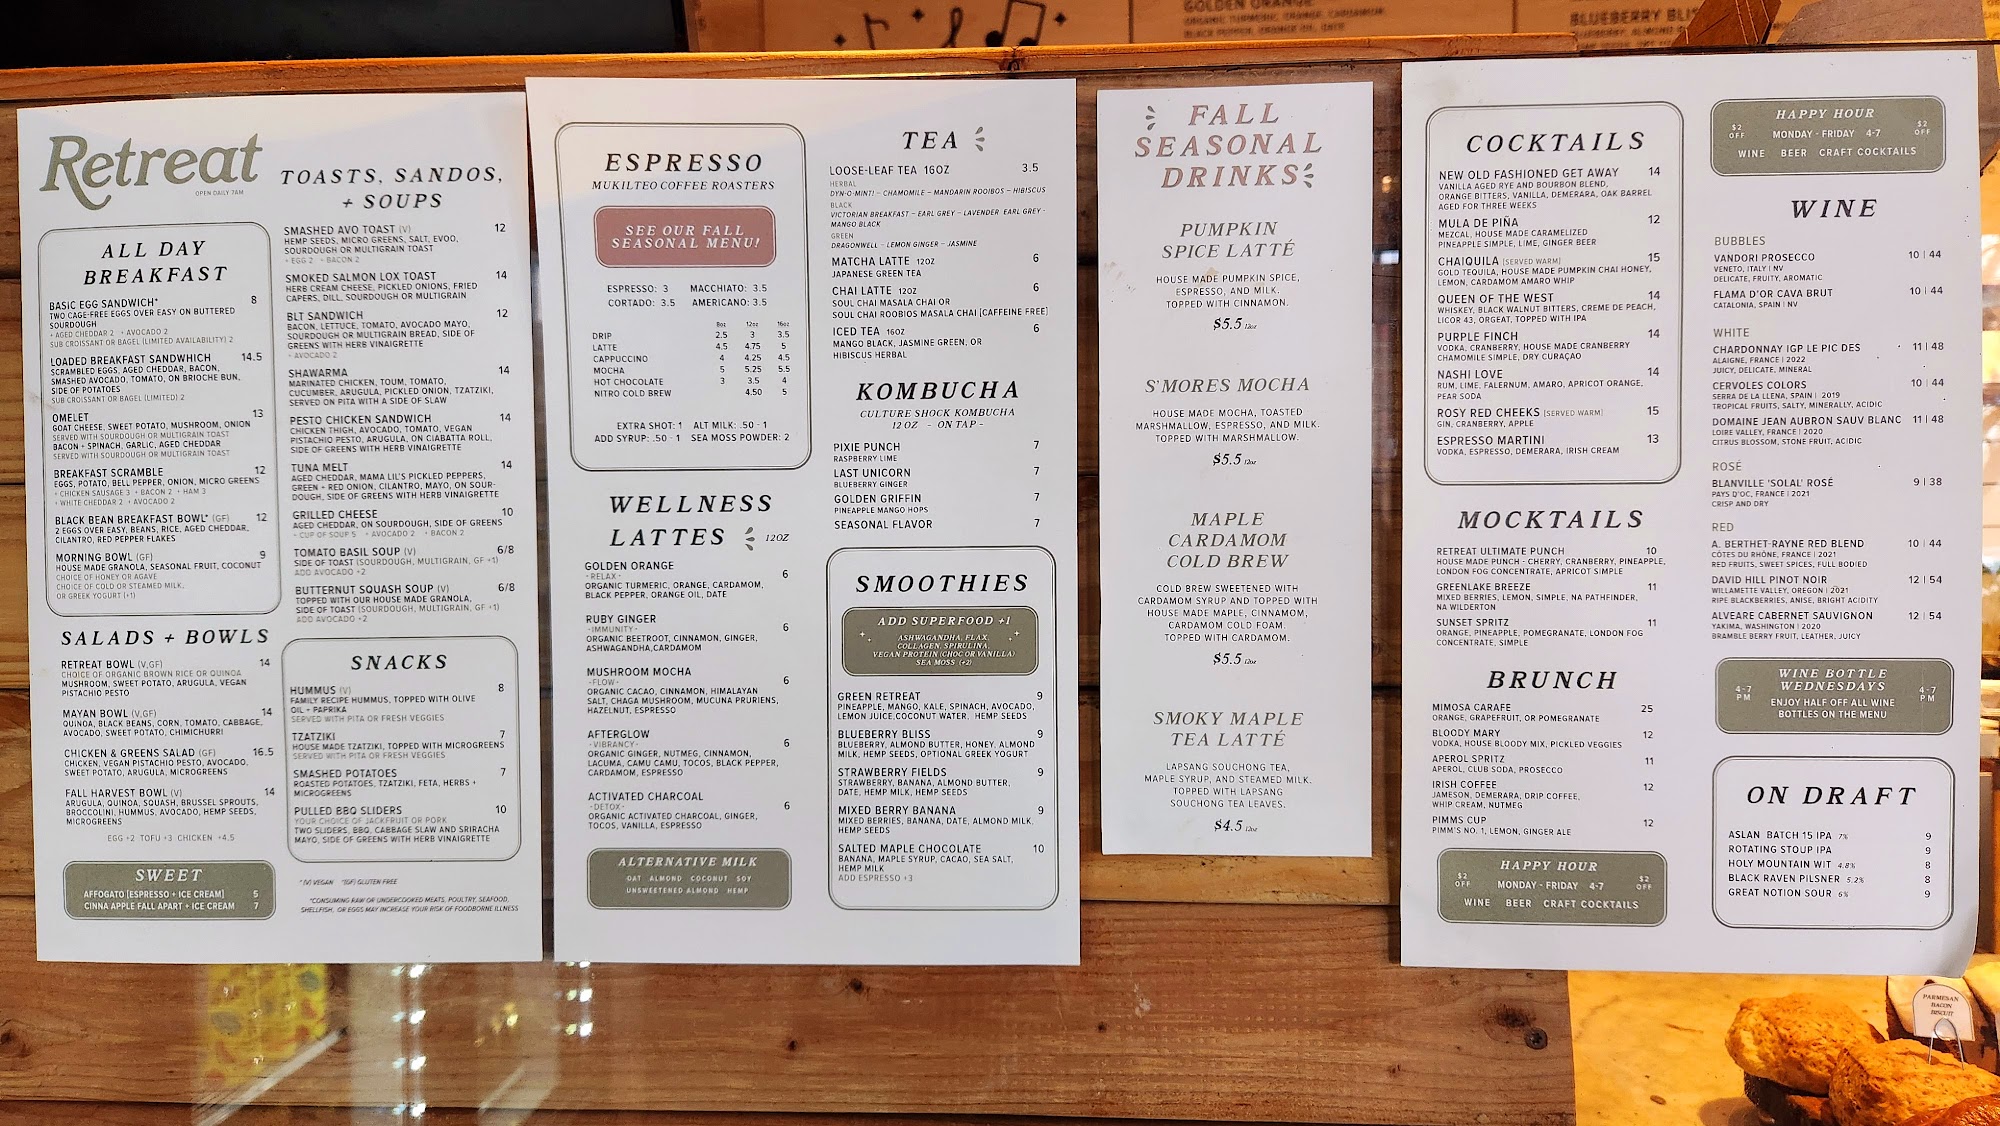 GOLDEN ORANGE
ORGANIC TURMERIC, ORANGE, CARDAMOM
BLACK PEPPER, ORANGE OIL, DATE
BLUEBERRY BLIS
Retreat
OPEN DAILY 7AM
ALL DAY
BREAKFAST
BASIC EGG SANDWICH* 8
TWO CAGE-FREE EGGS OVER EASY ON BUTTERED
SOURDOUGH
+ AGED CHEDDAR 2 + AVOCADO 2
SUB CROISSANT OR BAGEL (LIMITED AVAILABILITY) 2
LOADED BREAKFAST SANDWHICH 14.5
SCRAMBLED EGGS, AGED CHEDDAR, BACON,
SMASHED AVOCADO, TOMATO, ON BRIOCHE BUN,
SIDE OF POTATOES
SUB CROISSANT OR BAGEL (LIMITED) 2
OMELET 13
GOAT CHEESE, SWEET POTATO, MUSHROOM, ONION
SERVED WITH SOURDOUGH OR MULTIGRAIN TOAST
BACON + SPINACH, GARLIC, AGED CHEDDAR
SERVED WITH SOURDOUGH OR MULTIGRAIN TOAST
BREAKFAST SCRAMBLE 12
EGGS, POTATO, BELL PEPPER, ONION, MICRO GREENS
+ CHICKEN SAUSAGE 3 + BACON 2 + HAM 3
+ WHITE CHEDDAR 2 + AVOCADO 2
BLACK BEAN BREAKFAST BOWL* (GF) 12
2 EGGS OVER EASY, BEANS, RICE, AGED CHEDDAR,
CILANTRO, RED PEPPER FLAKES
MORNING BOWL (GF) 9
HOUSE MADE GRANOLA, SEASONAL FRUIT, COCONUT
CHOICE OF HONEY OR AGAVE
CHOICE OF COLD OR STEAMED MILK,
OR GREEK YOGURT (+1)
SALADS + BOWLS
RETREAT BOWL (V,GF) 14
CHOICE OF ORGANIC BROWN RICE OR QUINOA
MUSHROOM, SWEET POTATO, ARUGULA, VEGAN
PISTACHIO PESTO
MAYAN BOWL (V,GF) 14
QUINOA, BLACK BEANS, CORN, TOMATO, CABBAGE,
AVOCADO, SWEET POTATO, CHIMICHURRI
CHICKEN & GREENS SALAD (GF) 16.5
CHICKEN, VEGAN PISTACHIO PESTO, AVOCADO,
SWEET POTATO, ARUGULA, MICROGREENS
FALL HARVEST BOWL (V) 14
ARUGULA, QUINOA, SQUASH, BRUSSEL SPROUTS,
BROCCOLINI, HUMMUS, AVOCADO, HEMP SEEDS,
MICROGREENS
EGG +2 TOFU +3 CHICKEN +4.5
SWEET
AFFOGATO [ESPRESSO + ICE CREAM] 5
CINNA APPLE FALL APART + ICE CREAM 7
TOASTS, SANDOS,
+ SOUPS
SMASHED AVO TOAST (V) 12
HEMP SEEDS, MICRO GREENS, SALT, EVOO,
SOURDOUGH OR MULTIGRAIN TOAST
+ EGG 2 + BACON 2
SMOKED SALMON LOX TOAST 14
HERB CREAM CHEESE, PICKLED ONIONS, FRIED
CAPERS, DILL, SOURDOUGH OR MULTIGRAIN
BLT SANDWICH 12
BACON, LETTUCE, TOMATO, AVOCADO MAYO,
SOURDOUGH OR MULTIGRAIN BREAD, SIDE OF
GREENS WITH HERB VINAIGRETTE
+ AVOCADO 2
SHAWARMA 14
MARINATED CHICKEN, TOUM, TOMATO,
CUCUMBER, ARUGULA, PICKLED ONION, TZATZIKI,
SERVED ON PITA WITH A SIDE OF SLAW
PESTO CHICKEN SANDWICH 14
CHICKEN THIGH, AVOCADO, TOMATO, VEGAN
PISTACHIO PESTO, ARUGULA, ON CIABATTA ROLL,
SIDE OF GREENS WITH HERB VINAIGRETTE
TUNA MELT 14
AGED CHEDDAR, MAMA LIL'S PICKLED PEPPERS,
GREEN + RED ONION, CILANTRO, MAYO, ON SOUR-
DOUGH, SIDE OF GREENS WITH HERB VINAIGRETTE
GRILLED CHEESE 10
AGED CHEDDAR, ON SOURDOUGH, SIDE OF GREENS
+ CUP OF SOUP 5 + AVOCADO 2 + BACON 2
TOMATO BASIL SOUP (V) 6/8
SIDE OF TOAST (SOURDOUGH, MULTIGRAIN, GF +1)
ADD AVOCADO +2
BUTTERNUT SQUASH SOUP (V) 6/8
TOPPED WITH OUR HOUSE MADE GRANOLA,
SIDE OF TOAST (SOURDOUGH, MULTIGRAIN, GF +1)
ADD AVOCADO +2
SNACKS
HUMMUS (V) 8
FAMILY RECIPE HUMMUS, TOPPED WITH OLIVE
OIL + PAPRIKA
SERVED WITH PITA OR FRESH VEGGIES
TZATZIKI 7
HOUSE MADE TZATZIKI, TOPPED WITH MICROGREENS
SERVED WITH PITA OR FRESH VEGGIES
SMASHED POTATOES 7
ROASTED POTATOES, TZATZIKI, FETA, HERBS +
MICROGREENS
PULLED BBQ SLIDERS 10
YOUR CHOICE OF JACKFRUIT OR PORK
TWO SLIDERS, BBQ, CABBAGE SLAW AND SRIRACHA
MAYO, SIDE OF GREENS WITH HERB VINAIGRETTE
*(V) VEGAN *(GF) GLUTEN FREE
*CONSUMING RAW OR UNDERCOOKED MEATS, POULTRY, SEAFOOD,
SHELLFISH, OR EGGS MAY INCREASE YOUR RISK OF FOODBORNE ILLNESS
ESPRESSO
MUKILTEO COFFEE ROASTERS
SEE OUR FALL
SEASONAL MENU!
ESPRESSO: 3 MACCHIATO: 3.5
CORTADO: 3.5 AMERICANO: 3.5
8oz 12oz 16oz
DRIP 2.5 3 3.5
LATTE 4.5 4.75 5
CAPPUCCINO 4 4.25 4.5
MOCHA 5 5.25 5.5
HOT CHOCOLATE 3 3.5 4
NITRO COLD BREW 4.50 5
EXTRA SHOT: 1 ALT MILK: .50 - 1
ADD SYRUP: .50 - 1 SEA MOSS POWDER: 2
WELLNESS
LATTES 12OZ
GOLDEN ORANGE
- RELAX - 6
ORGANIC TURMERIC, ORANGE, CARDAMOM,
BLACK PEPPER, ORANGE OIL, DATE
RUBY GINGER
-IMMUNITY- 6
ORGANIC BEETROOT, CINNAMON, GINGER,
ASHWAGANDHA,CARDAMOM
MUSHROOM MOCHA
-FLOW- 6
ORGANIC CACAO, CINNAMON, HIMALAYAN
SALT, CHAGA MUSHROOM, MUCUNA PRURIENS,
HAZELNUT, ESPRESSO
AFTERGLOW
-VIBRANCY- 6
ORGANIC GINGER, NUTMEG, CINNAMON,
LACUMA, CAMU CAMU, TOCOS, BLACK PEPPER,
CARDAMOM, ESPRESSO
ACTIVATED CHARCOAL
-DETOX- 6
ORGANIC ACTIVATED CHARCOAL, GINGER,
TOCOS, VANILLA, ESPRESSO
ALTERNATIVE MILK
OAT ALMOND COCONUT SOY
UNSWEETENED ALMOND HEMP
TEA
LOOSE-LEAF TEA 16OZ 3.5
HERBAL
DYN-O MINT! – CHAMOMILE – MANDARIN ROOIBOS – HIBISCUS
BLACK
VICTORIAN BREAKFAST – EARL GREY – LAVENDER EARL GREY -
MANGO BLACK
GREEN
DRAGONWELL – LEMON GINGER – JASMINE
MATCHA LATTE 12OZ 6
JAPANESE GREEN TEA
CHAI LATTE 12OZ 6
SOUL CHAI MASALA CHAI OR
SOUL CHAI ROOIBOS MASALA CHAI [CAFFEINE FREE]
ICED TEA 16OZ 6
MANGO BLACK, JASMINE GREEN, OR
HIBISCUS HERBAL
KOMBUCHA
CULTURE SHOCK KOMBUCHA
12 OZ - ON TAP -
PIXIE PUNCH 7
RASPBERRY LIME
LAST UNICORN 7
BLUEBERRY GINGER
GOLDEN GRIFFIN 7
PINEAPPLE MANGO HOPS
SEASONAL FLAVOR 7
SMOOTHIES
ADD SUPERFOOD +1
ASHWAGANDHA, FLAX,
COLLAGEN, SPIRULINA,
VEGAN PROTEIN (CHOC OR VANILLA)
SEA MOSS (+2)
GREEN RETREAT 9
PINEAPPLE, MANGO, KALE, SPINACH, AVOCADO,
LEMON JUICE,COCONUT WATER, HEMP SEEDS
BLUEBERRY BLISS 9
BLUEBERRY, ALMOND BUTTER, HONEY, ALMOND
MILK, HEMP SEEDS, OPTIONAL GREEK YOGURT
STRAWBERRY FIELDS 9
STRAWBERRY, BANANA, ALMOND BUTTER,
DATE, HEMP MILK, HEMP SEEDS
MIXED BERRY BANANA 9
MIXED BERRIES, BANANA, DATE, ALMOND MILK,
HEMP SEEDS
SALTED MAPLE CHOCOLATE 10
BANANA, MAPLE SYRUP, CACAO, SEA SALT,
HEMP MILK
ADD ESPRESSO +3
FALL
SEASONAL
DRINKS
PUMPKIN
SPICE LATTÉ
HOUSE MADE PUMPKIN SPICE,
ESPRESSO, AND MILK.
TOPPED WITH CINNAMON.
$5.5 12oz
S'MORES MOCHA
HOUSE MADE MOCHA, TOASTED
MARSHMALLOW, ESPRESSO, AND MILK.
TOPPED WITH MARSHMALLOW.
$5.5 12oz
MAPLE
CARDAMOM
COLD BREW
COLD BREW SWEETENED WITH
CARDAMOM SYRUP AND TOPPED WITH
HOUSE MADE MAPLE, CINNAMON,
CARDAMOM COLD FOAM.
TOPPED WITH CARDAMOM.
$5.5 12oz
SMOKY MAPLE
TEA LATTÉ
LAPSANG SOUCHONG TEA,
MAPLE SYRUP, AND STEAMED MILK.
TOPPED WITH LAPSANG
SOUCHONG TEA LEAVES.
$4.5 12oz
COCKTAILS
NEW OLD FASHIONED GET AWAY 14
VANILLA AGED RYE AND BOURBON BLEND,
ORANGE BITTERS, VANILLA, DEMERARA, OAK BARREL
AGED FOR THREE WEEKS
MULA DE PIÑA 12
MEZCAL, HOUSE MADE CARAMELIZED
PINEAPPLE SIMPLE, LIME, GINGER BEER
CHAIQUILA [SERVED WARM] 15
GOLD TEQUILA, HOUSE MADE PUMPKIN CHAI HONEY,
LEMON, CARDAMOM AMARO WHIP
QUEEN OF THE WEST 14
WHISKEY, BLACK WALNUT BITTERS, CREME DE PEACH,
LICOR 43, ORGEAT, TOPPED WITH IPA
PURPLE FINCH 14
VODKA, CRANBERRY, HOUSE MADE CRANBERRY
CHAMOMILE SIMPLE, DRY CURAÇAO
NASHI LOVE 14
RUM, LIME, FALERNUM, AMARO, APRICOT ORANGE,
PEAR SODA
ROSY RED CHEEKS [SERVED WARM] 15
GIN, CRANBERRY, APPLE
ESPRESSO MARTINI 13
VODKA, ESPRESSO, DEMERARA, IRISH CREAM
MOCKTAILS
RETREAT ULTIMATE PUNCH 10
HOUSE MADE PUNCH - CHERRY, CRANBERRY, PINEAPPLE,
LONDON FOG CONCENTRATE, APRICOT SIMPLE
GREENLAKE BREEZE 11
MIXED BERRIES, LEMON, SIMPLE, NA PATHFINDER,
NA WILDERTON
SUNSET SPRITZ 11
ORANGE, PINEAPPLE, POMEGRANATE, LONDON FOG
CONCENTRATE, SIMPLE
BRUNCH
MIMOSA CARAFE 25
ORANGE, GRAPEFRUIT, OR POMEGRANATE
BLOODY MARY 12
VODKA, HOUSE BLOODY MIX, PICKLED VEGGIES
APEROL SPRITZ 11
APEROL, CLUB SODA, PROSECCO
IRISH COFFEE 12
JAMESON, DEMERARA, DRIP COFFEE,
WHIP CREAM, NUTMEG
PIMMS CUP 12
PIMM'S NO. 1, LEMON, GINGER ALE
HAPPY HOUR
$2 OFF MONDAY - FRIDAY 4-7 $2 OFF
WINE BEER CRAFT COCKTAILS
HAPPY HOUR
$2 OFF MONDAY - FRIDAY 4-7 $2 OFF
WINE BEER CRAFT COCKTAILS
WINE
BUBBLES
VANDORI PROSECCO 10 | 44
VENETO, ITALY | NV
DELICATE, FRUITY, AROMATIC
FLAMA D'OR CAVA BRUT 10 | 44
CATALONIA, SPAIN | NV
WHITE
CHARDONNAY IGP LE PIC DES 11 | 48
ALAIGNE, FRANCE | 2022
JUICY, DELICATE, MINERAL
CERVOLES COLORS 10 | 44
SERRA DE LA LLENA, SPAIN | 2019
TROPICAL FRUITS, SALTY, MINERALLY, ACIDIC
DOMAINE JEAN AUBRON SAUV BLANC 11 | 48
LOIRE VALLEY, FRANCE | 2020
CITRUS BLOSSOM, STONE FRUIT, ACIDIC
ROSÉ
BLANVILLE 'SOLAL' ROSÉ 9 | 38
PAYS D'OC, FRANCE | 2021
CRISP AND DRY
RED
A. BERTHET-RAYNE RED BLEND 10 | 44
CÔTES DU RHÔNE, FRANCE | 2021
RED FRUITS, SWEET SPICES, FULL BODIED
DAVID HILL PINOT NOIR 12 | 54
WILLAMETTE VALLEY, OREGON | 2021
RIPE BLACKBERRIES, ANISE, BRIGHT ACIDITY
ALVEARE CABERNET SAUVIGNON 12 | 54
YAKIMA, WASHINGTON | 2020
BRAMBLE BERRY FRUIT, LEATHER, JUICY
WINE BOTTLE
WEDNESDAYS
4-7 PM ENJOY HALF OFF ALL WINE 4-7 PM
BOTTLES ON THE MENU
ON DRAFT
ASLAN BATCH 15 IPA 7% 9
ROTATING STOUP IPA 9
HOLY MOUNTAIN WIT 4.8% 8
BLACK RAVEN PILSNER 5.2% 8
GREAT NOTION SOUR 6% 9
PARMESAN
BACON
BISCUIT